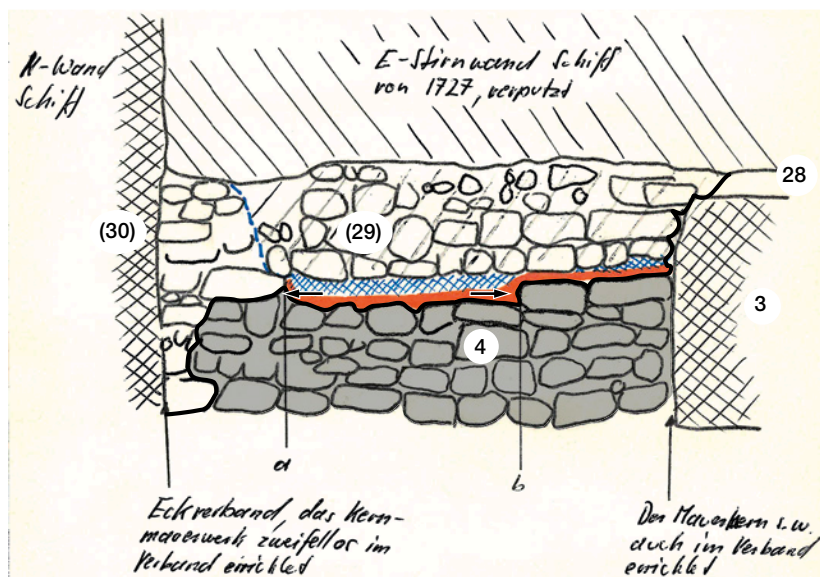 N-Wand
Schiff
E-Stirnwand Schiff
von 1727, verputzt
28
(30)
(29)
3
4
a
b
Eckverband, das Kern-
mauerwerk zweifellos im
Verband errichtet
Der Mauerkern s.w.
auch im Verband
errichtet